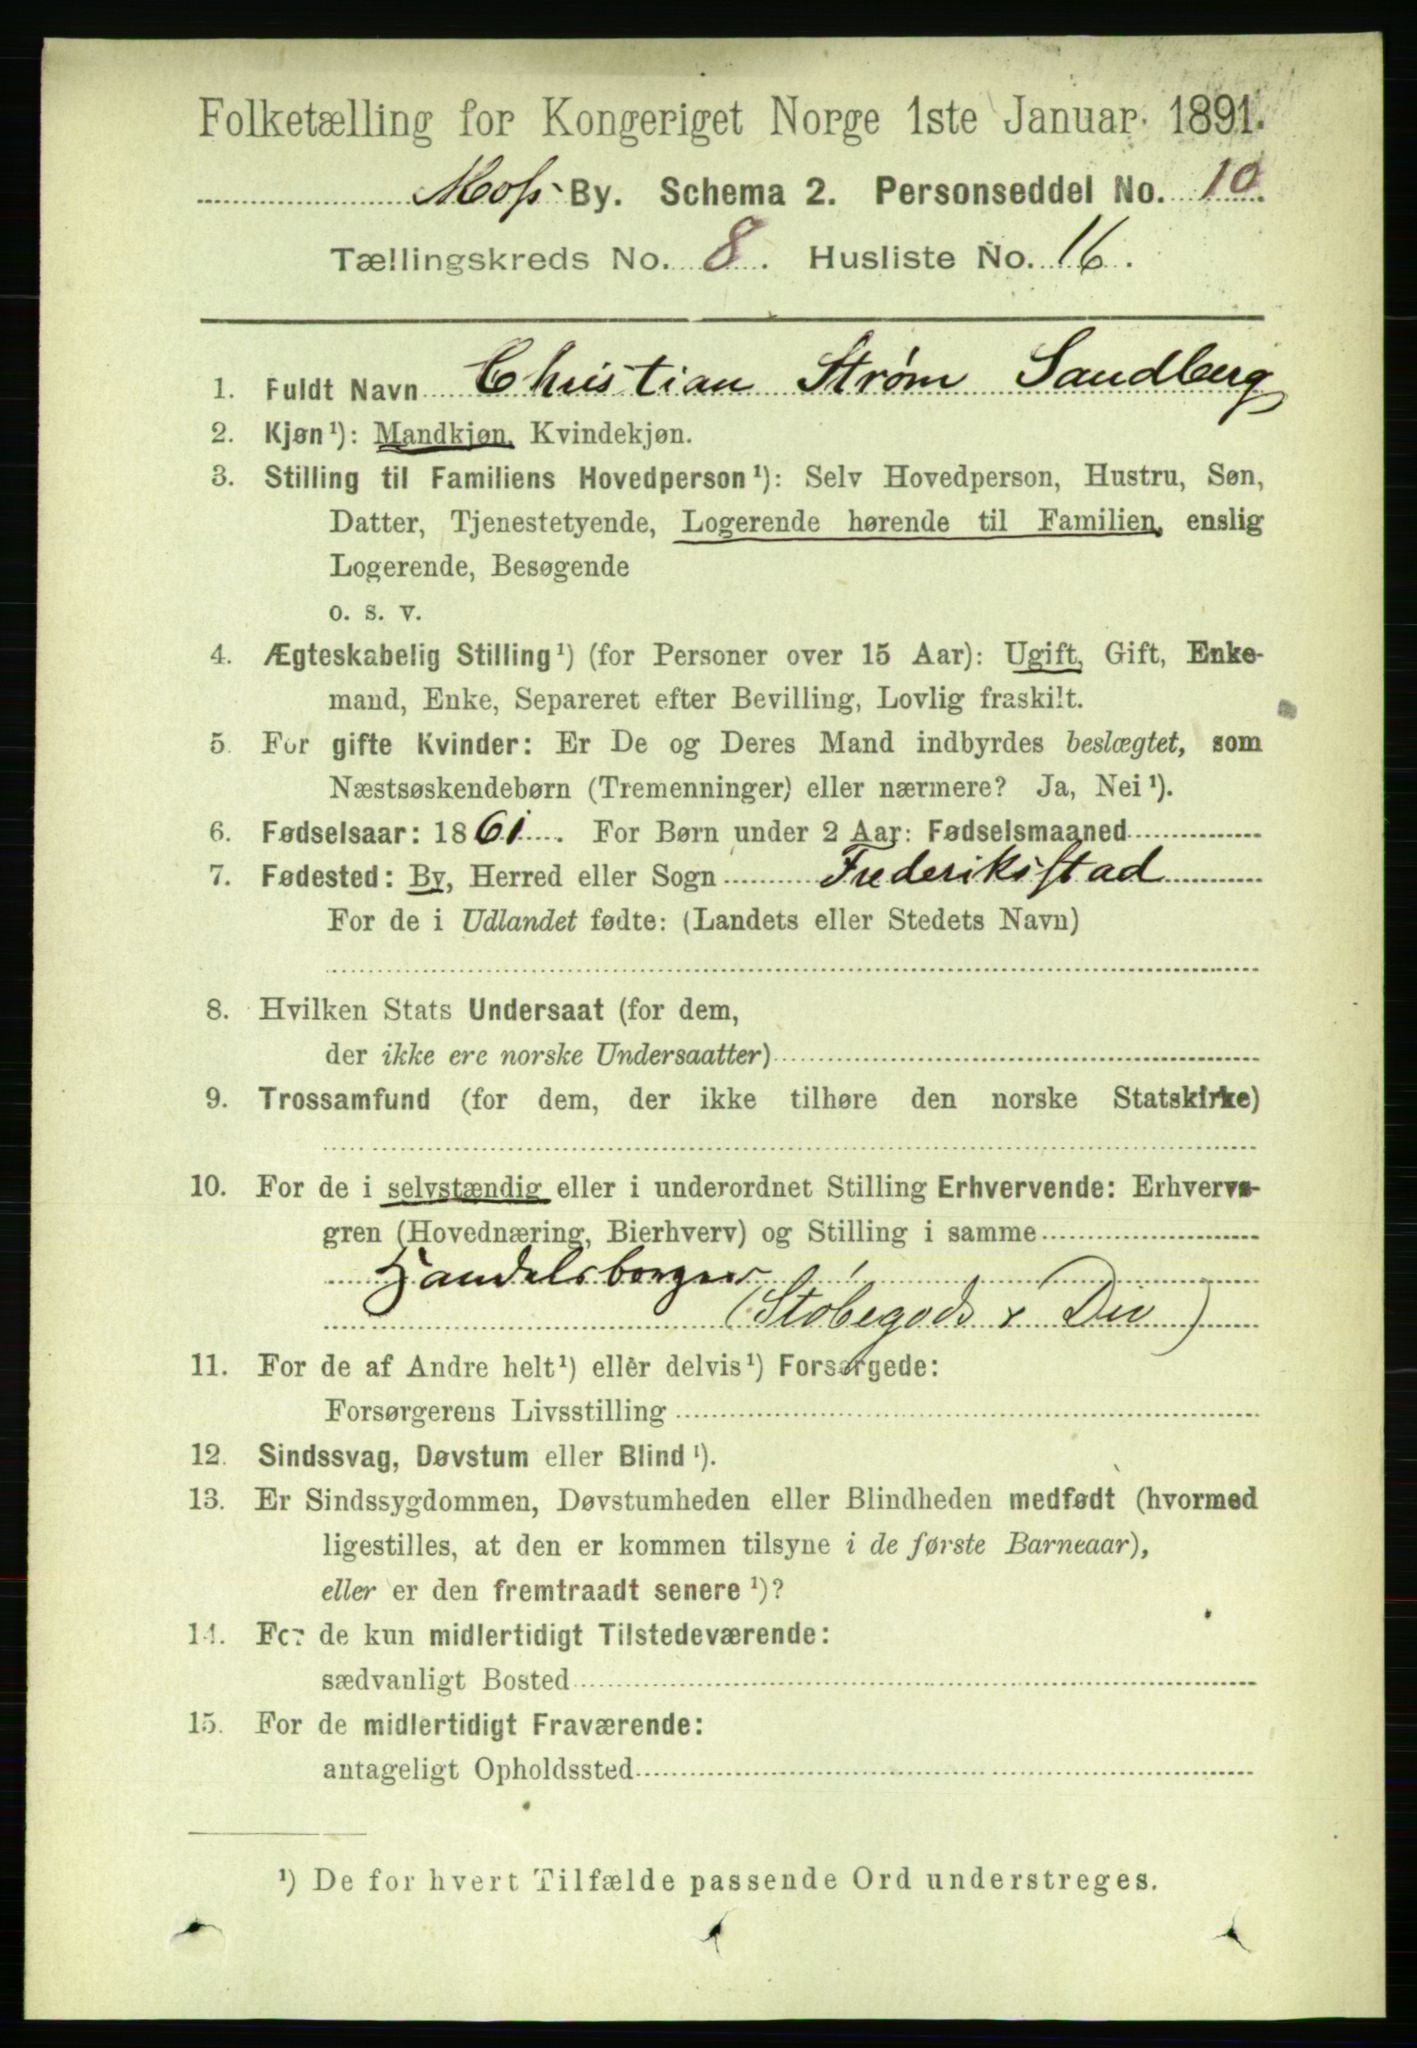 Folketælling for Kongeriget Norge 1ste Januar 1891.
Moss By. Schema 2. Personseddel No. 10.
Tællingskreds No. 8. Husliste No. 16.
1. Fuldt Navn Christian Strøm Sandberg
2. Kjøn¹): Mandkjøn, Kvindekjøn.
3. Stilling til Familiens Hovedperson¹): Selv Hovedperson, Hustru, Søn,
Datter, Tjenestetyende, Logerende hørende til Familien, enslig
Logerende, Besøgende
o. s. v.
4. Ægteskabelig Stilling¹) (for Personer over 15 Aar): Ugift, Gift, Enke-
mand, Enke, Separeret efter Bevilling, Lovlig fraskilt.
5. For gifte Kvinder: Er De og Deres Mand indbyrdes beslægtet, som
Næstsøskendebørn (Tremenninger) eller nærmere? Ja, Nei¹).
6. Fødselsaar: 1861. For Børn under 2 Aar: Fødselsmaaned
7. Fødested: By, Herred eller Sogn Frederiksstad
For de i Udlandet fødte: (Landets eller Stedets Navn)
8. Hvilken Stats Undersaat (for dem,
der ikke ere norske Undersaatter)
9. Trossamfund (for dem, der ikke tilhøre den norske Statskirke)
10. For de i selvstændig eller i underordnet Stilling Erhvervende: Erhvervs-
gren (Hovednæring, Bierhverv) og Stilling i samme
Handelsborger
(Støbegods & Div)
11. For de af Andre helt¹) eller delvis¹) Forsørgede:
Forsørgerens Livsstilling
12. Sindssvag, Døvstum eller Blind¹).
13. Er Sindssygdommen, Døvstumheden eller Blindheden medfødt (hvormed
ligestilles, at den er kommen tilsyne i de første Barneaar),
eller er den fremtraadt senere¹)?
14. For de kun midlertidigt Tilstedeværende:
sædvanligt Bosted
15. For de midlertidigt Fraværende:
antageligt Opholdssted
¹) De for hvert Tilfælde passende Ord understreges.